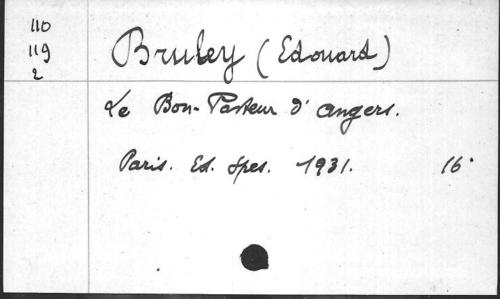 110
119
2
Bruley (Edouard)
Le Bon-Pasteur d'Angers.
Paris. Ed. Spes. 1931. 16°